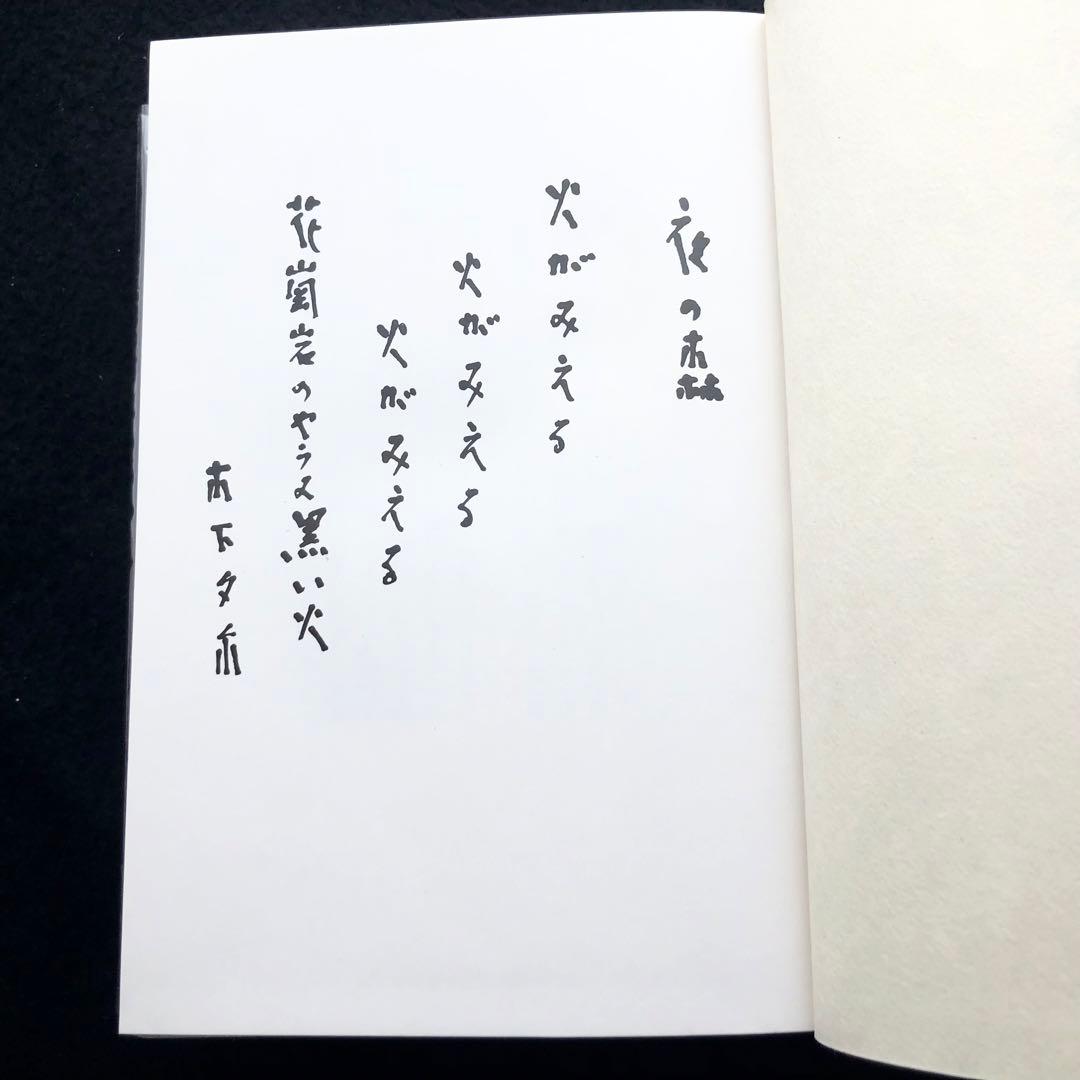 夜の森
火がみえる
火がみえる
火がみえる
花崗岩のやうな黒い火
木下夕爾